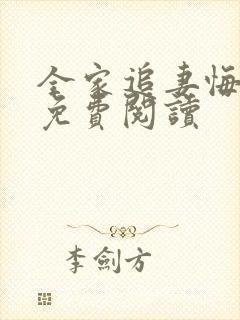 全家追妻悔
免費閱讀
李劍方